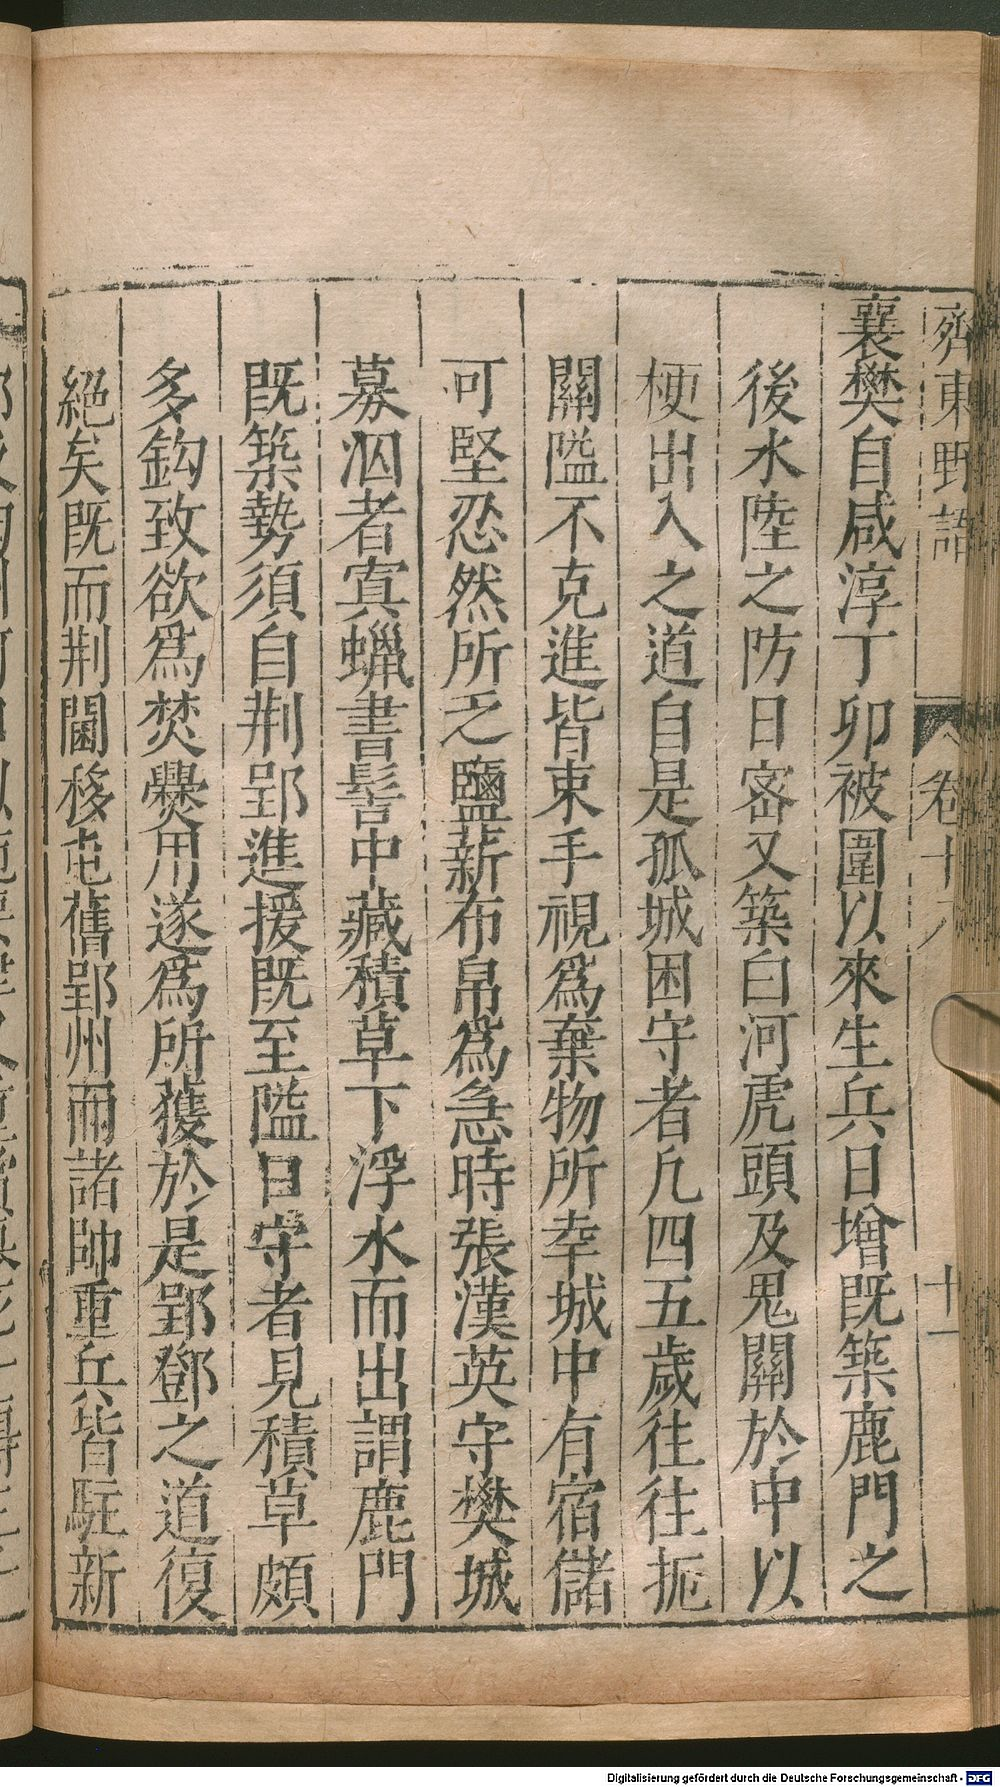 齊東野語
卷十
十一
襄樊自咸淳丁卯被圍以來生兵日增既築鹿門之
後水陸之防日宻又築白河虎頭及鬼關於中以
梗出入之道自是孤城困守者凢四五歲往往扼
關隘不克進皆束手視爲棄物所幸城中有宿儲
可堅忍然所乏鹽薪布帛爲急時張漢英守樊城
募泅者寘蠟書髻中藏積草下浮水而出謂鹿門
既築勢須自荆郢進援既至隘口守者見積草頗
多鈎致欲爲焚爨用遂爲所獲於是郢鄧之道復
絕矣既而荆閫移屯舊郢州而諸帥重兵皆駐新
Digitalisierung gefördert durch die Deutsche Forschungsgemeinschaft - DFG